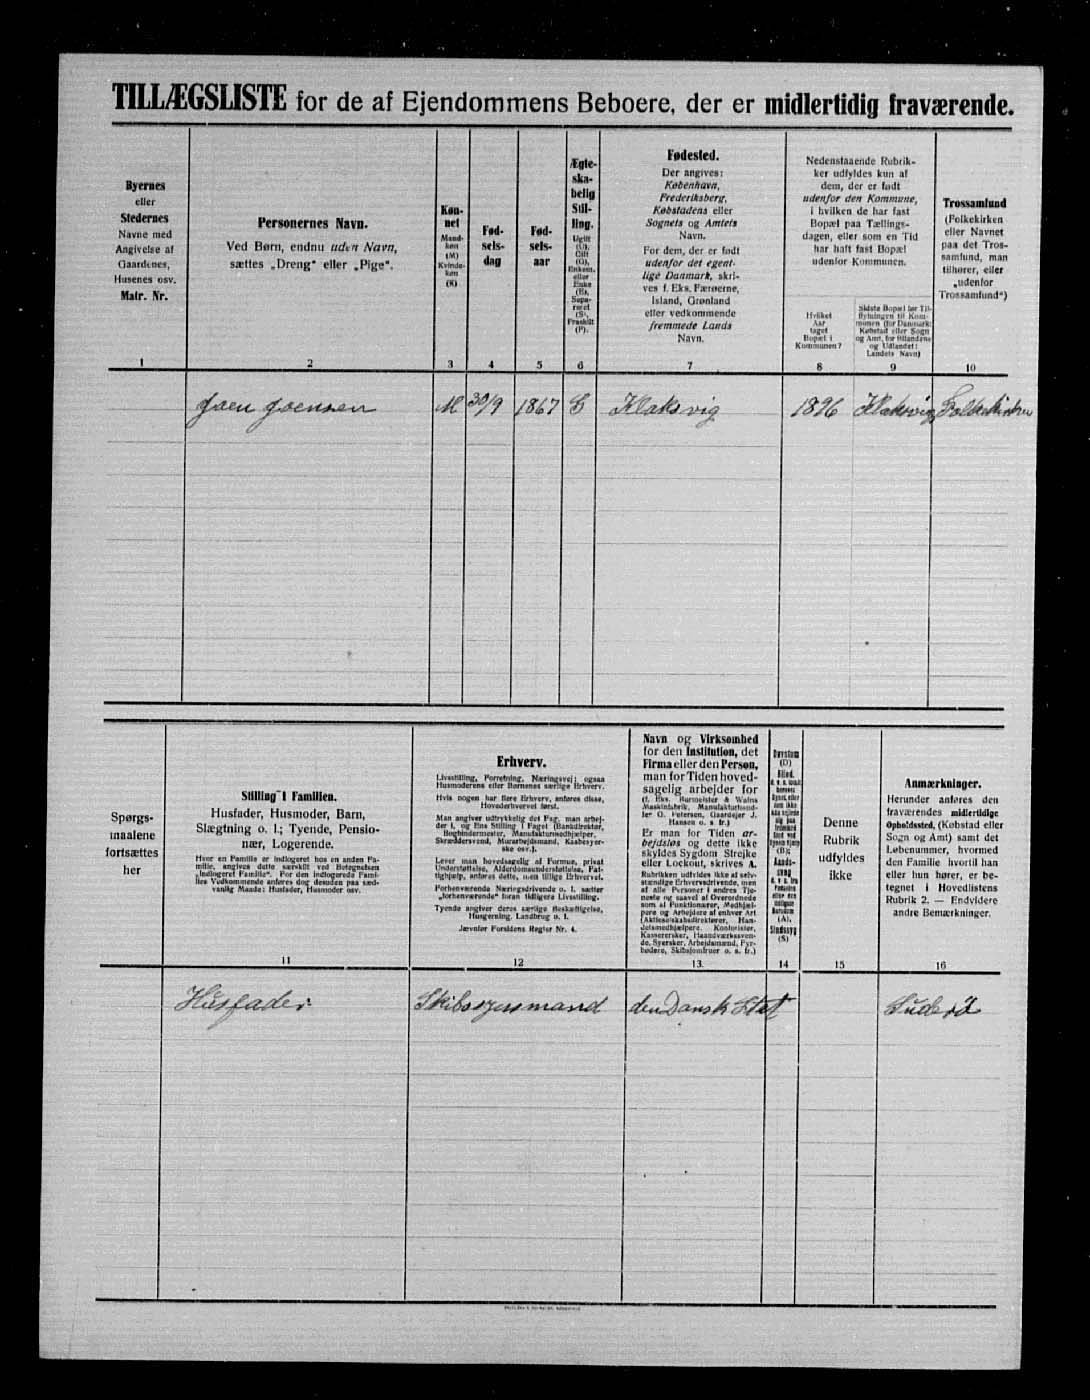 TILLÆGSLISTE for de af Ejendommens Beboere, der er midlertidig fraværende.
Byernes
eller
Stedernes
Navne med
Angivelse af
Gaardenes,
Husenes osv.
Matr. Nr.
1
Personernes Navn.
Ved Børn, endnu uden Navn,
sættes „Dreng“ eller „Pige“.
2
Køn-
net
Mand-
køn
(M)
Kvinde-
køn
(K)
3
Fød-
sels-
dag
4
Fød-
sels-
aar
5
Ægte-
ska-
belig
Stil-
ling.
Ugift
(U),
Gift
(G),
Enkem.
eller
Enke
(E),
Sepa-
reret
(S),
Fraskilt
(F).
6
Fødested.
Der angives:
København,
Frederiksberg,
Købstadens eller
Sognets og Amtets
Navn.
For dem, der er født
udenfor det egent-
lige Danmark, skri-
ves f. Eks. Færøerne,
Island, Grønland
eller vedkommende
fremmede Lands
Navn.
7
Nedenstaaende Rubrik-
ker udfyldes kun af
dem, der er født
udenfor den Kommune,
i hvilken de har fast
Bopæl paa Tællings-
dagen, eller som en Tid
har haft fast Bopæl
udenfor Kommunen.
Hvilket
Aar
taget
Bopæl i
Kommunen?
8
Sidste Bopæl før Til-
flytningen til Kom-
munen (for Danmark:
Købstad eller Sogn
og Amt, for Bilandene
og Udlandet:
Landets Navn)
9
Trossamfund
(Folkekirken
eller Navnet
paa det Tros-
samfund, man
tilhører, eller
„udenfor
Trossamfund“)
10
Joen Joensen M 30/9 1867 G Klaksvig 1896 Klaksvig Folkekirken
Spørgs-
maalene
fortsættes
her
Stilling i Familien.
Husfader, Husmoder, Barn,
Slægtning o. l.; Tyende, Pensio-
nær, Logerende.
Hvor en Familie er indlogeret hos en anden Fa-
milie, angives dette særskilt ved Betegnelsen
„Indlogeret Familie“. For den indlogerede Fami-
lies Vedkommende anføres dog desuden paa sæd-
vanlig Maade: Husfader, Husmoder osv.
11
Erhverv.
Livsstilling, Forretning, Næringsvej; ogsaa
Husmoderens eller Børnenes særlige Erhverv.
Hvis nogen har flere Erhverv, anføres disse,
Hovederhvervet først.
Man angiver udtrykkelig det Fag, man arbej-
der i, og Ens Stilling i Faget (Bankdirektør,
Bogbindermester, Manufakturmedhjælper,
Skræddersvend, Murarbejdsmand, Kaabesyer-
ske osv.).
Lever man hovedsagelig af Formue, privat
Understøttelse, Alderdomsunderstøttelse, Fat-
tighjælp, anføres dette, men tillige Erhvervet.
Forhenværende Næringsdrivende o. l. sætter
„forhenværende“ foran tidligere Livsstilling.
Tyende angiver deres særlige Beskæftigelse,
Husgerning, Landbrug o. l.
Jævnfør Forsidens Regler Nr. 4.
12
Navn og Virksomhed
for den Institution, det
Firma eller den Person,
man for Tiden hoved-
sagelig arbejder for
(f. Eks. Burmeister & Wains
Maskinfabrik, Manufakturhand-
ler O. Petersen, Gaardejer J.
Hansen o. s fr.)
Er man for Tiden ar-
bejdsløs og dette ikke
skyldes Sygdom Strejke
eller Lockout, skrives A.
Rubrikken udfyldes ikke af selv-
stændige Erhvervsdrivende, men
af alle Personer i andres Tje-
neste og saavel af Overordnede
som af Funktionærer, Medhjæl-
pere og Arbejdere af enhver Art
(Aktieselskabsdirektører, Han-
delsmedhjælpere, Kontorister,
Kassererskér, Haandværkssven-
de, Syersker, Arbejdsmænd, Fyr-
bødere, Skibsjomfruer o. s. fr.)
13.
Døvstum
(D)
Blind,
(B);
Aands-
svag
(A),
Sindssyg
(S)
14
Denne
Rubrik
udfyldes
ikke
15
Anmærkninger.
Herunder anføres den
fraværendes midlertidige
Opholdssted, (Købstad eller
Sogn og Amt) samt det
Løbenummer, hvormed
den Familie hvortil han
eller hun hører, er be-
tegnet i Hovedlistens
Rubrik 2. — Endvidere
andre Bemærkninger.
16
Husfader Skibszusmand den Dansk Stat Suderö